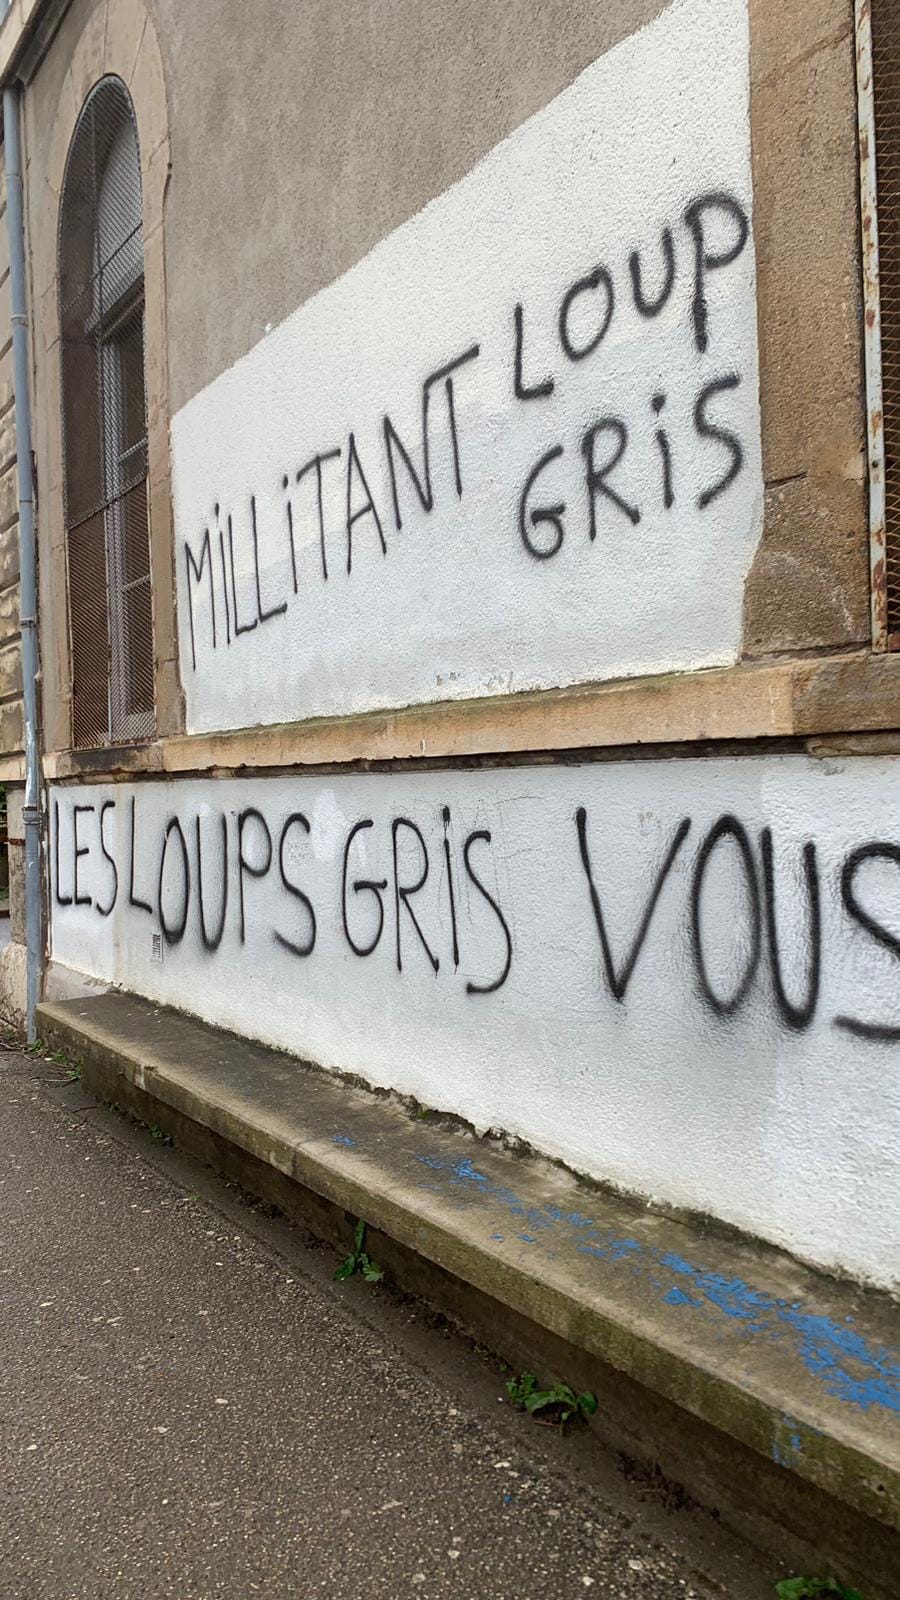 MiLLiTANT LOUP
GRiS
LES LOUPS GRiS VOUS